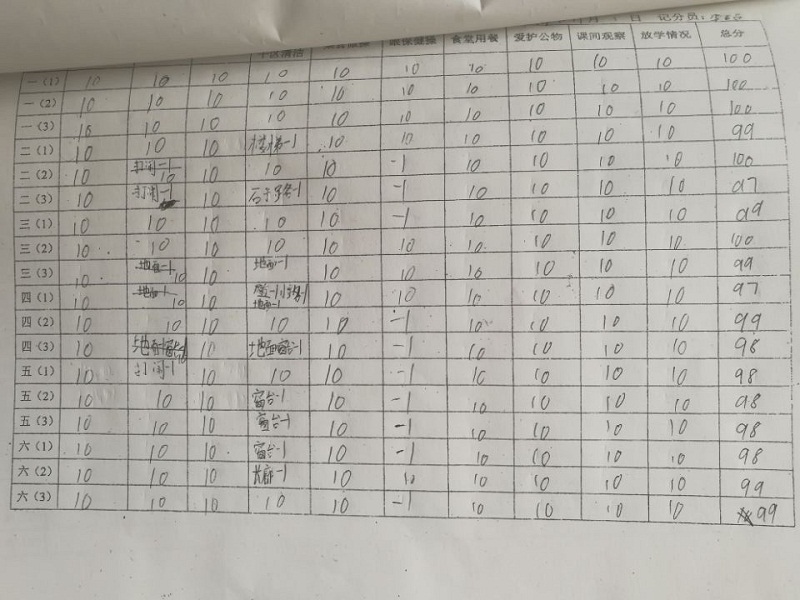 日 记分员：
食堂用餐 爱护公物 课间观察 放学情况 总分
一（1） 10 10 10 10 10 10 10 10 10 10 100
一（2） 10 10 10 10 10 10 10 10 10 10 100
一（3） 10 10 10 10 10 10 10 10 10 10 100
二（1） 10 10 10 楼梯-1 10 10 10 10 10 10 99
二（2） 10 打闹-1 10 10 10 10 -1 10 10 10 10 100
二（3） 10 打闹-1 10 -1 10 -1 10 10 10 10 97
三（1） 10 10 10 10 10 -1 10 10 10 10 99
三（2） 10 10 10 10 10 10 10 10 10 10 100
三（3） 10 地面-1 10 10 地面-1 10 10 10 10 10 10 99
四（1） 10 地面-1 10 10 地面-1 10 10 10 10 10 10 97
四（2） 10 10 10 10 10 -1 10 10 10 10 99
四（3） 10 10 地面窗台-1 10 -1 10 10 10 10 98
五（1） 10 打闹-1 10 10 10 -1 10 10 10 10 98
五（2） 10 10 10 窗台-1 10 -1 10 10 10 10 98
五（3） 10 10 10 窗台-1 10 -1 10 10 10 10 98
六（1） 10 10 10 窗台-1 10 -1 10 10 10 10 98
六（2） 10 10 10 走廊-1 10 10 10 10 10 10 99
六（3） 10 10 10 10 10 -1 10 10 10 10 99